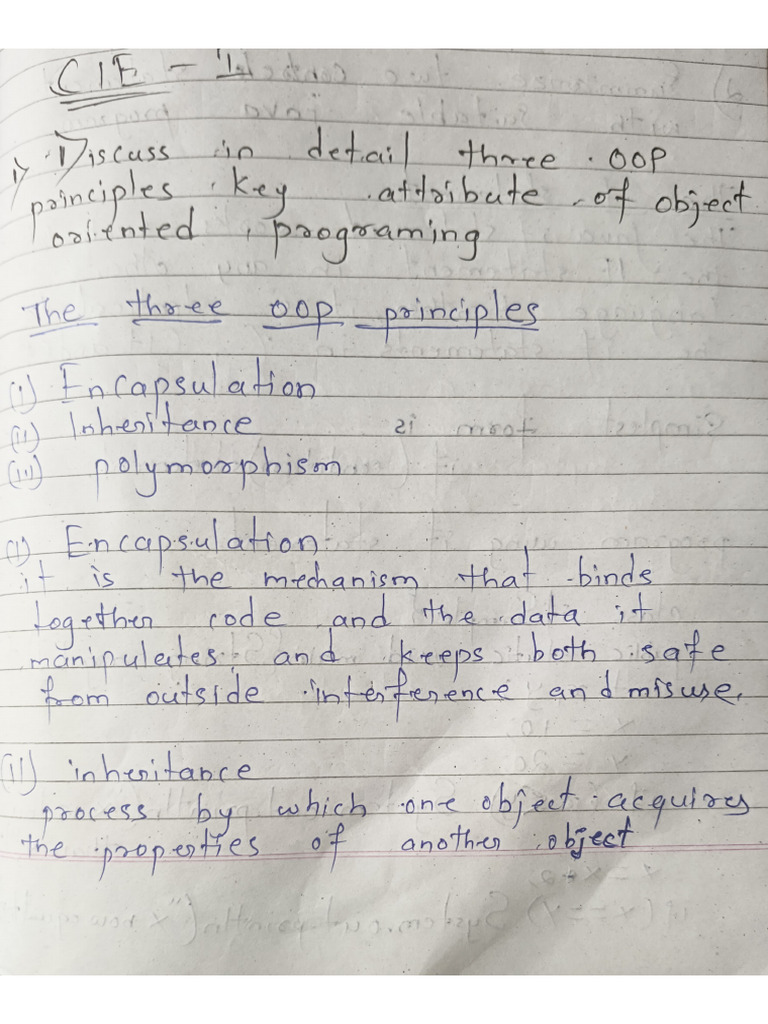 CIE - 1
1) Discuss in detail three OOP
principles key attribute of object
oriented programing
The three OOP principles
(i) Encapsulation
(ii) Inheritance
(iii) polymorphism
(i) Encapsulation
it is the mechanism that binds
together code and the data it
manipulates and keeps both safe
from outside interference and misuse.
(ii) inheritance
process by which one object acquires
the properties of another object